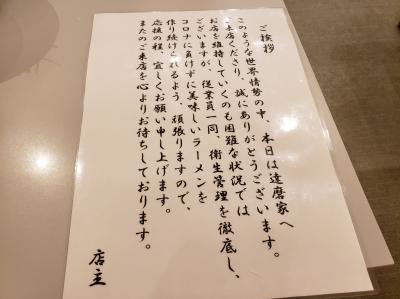 ご挨拶
このような世界情勢の中、本日は達磨家へ
ご来店くださり、誠にありがとうございます。
お店を維持していくのも困難な状況では
ございますが、従業員一同、衛生管理を徹底し、
コロナに負けずに美味しいラーメンを
作り続けられるよう、頑張りますので、
応援の程、宜しくお願い申し上げます。
またのご来店を心よりお待ちしております。
店主